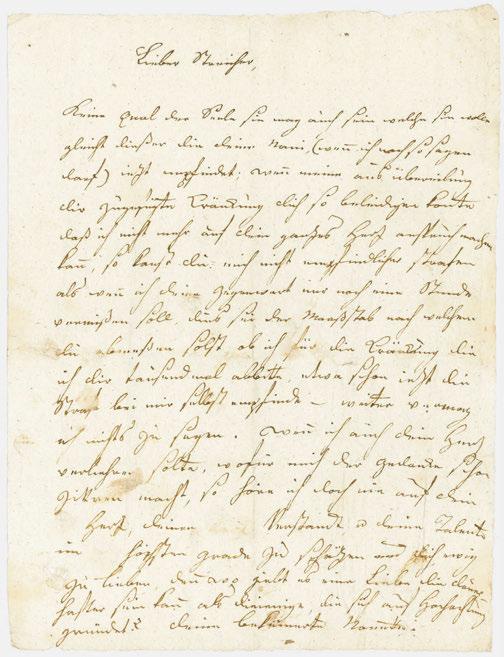 Lieber Streicher,
Keine Qual der Seele sie mag auch sein welche sie wolle
gleicht dießer die deine Nani, (wenn ich noch so sagen
darf) izt empfindet; wenn meine aus übereilung
dir zugefügte Kränkung dich so beleidigen konte
daß ich nicht mehr auf dein ganzes Herz anspruch machen
kan, so kanst du mich nicht empfindlicher strafen
als wenn ich deine gegenwart nur noch eine Stunde
vermißen soll, dies sei der Maaßstab nach welchem
du abmeßen solst ob ich für die Kränkung die
ich dir tausendmal abbitte, etwa schon izt die
Strafe bei mir selbst empfinde – weiter vermag
ich nichts zu sagen. wenn ich auch dein Herz
verliehren solte, wofür mich der gedanke schon
zittern macht, so höre ich doch nie auf dein
Herz, deinen Verstand u deine Talente
im höchsten grade zu schätzen und dich ewig
zu lieben, denn wo gebt es eine Liebe die dauer
hafter sein kan als diejenige, die sich auf Hochachtung
gründet? deine bekümerte Nannette.